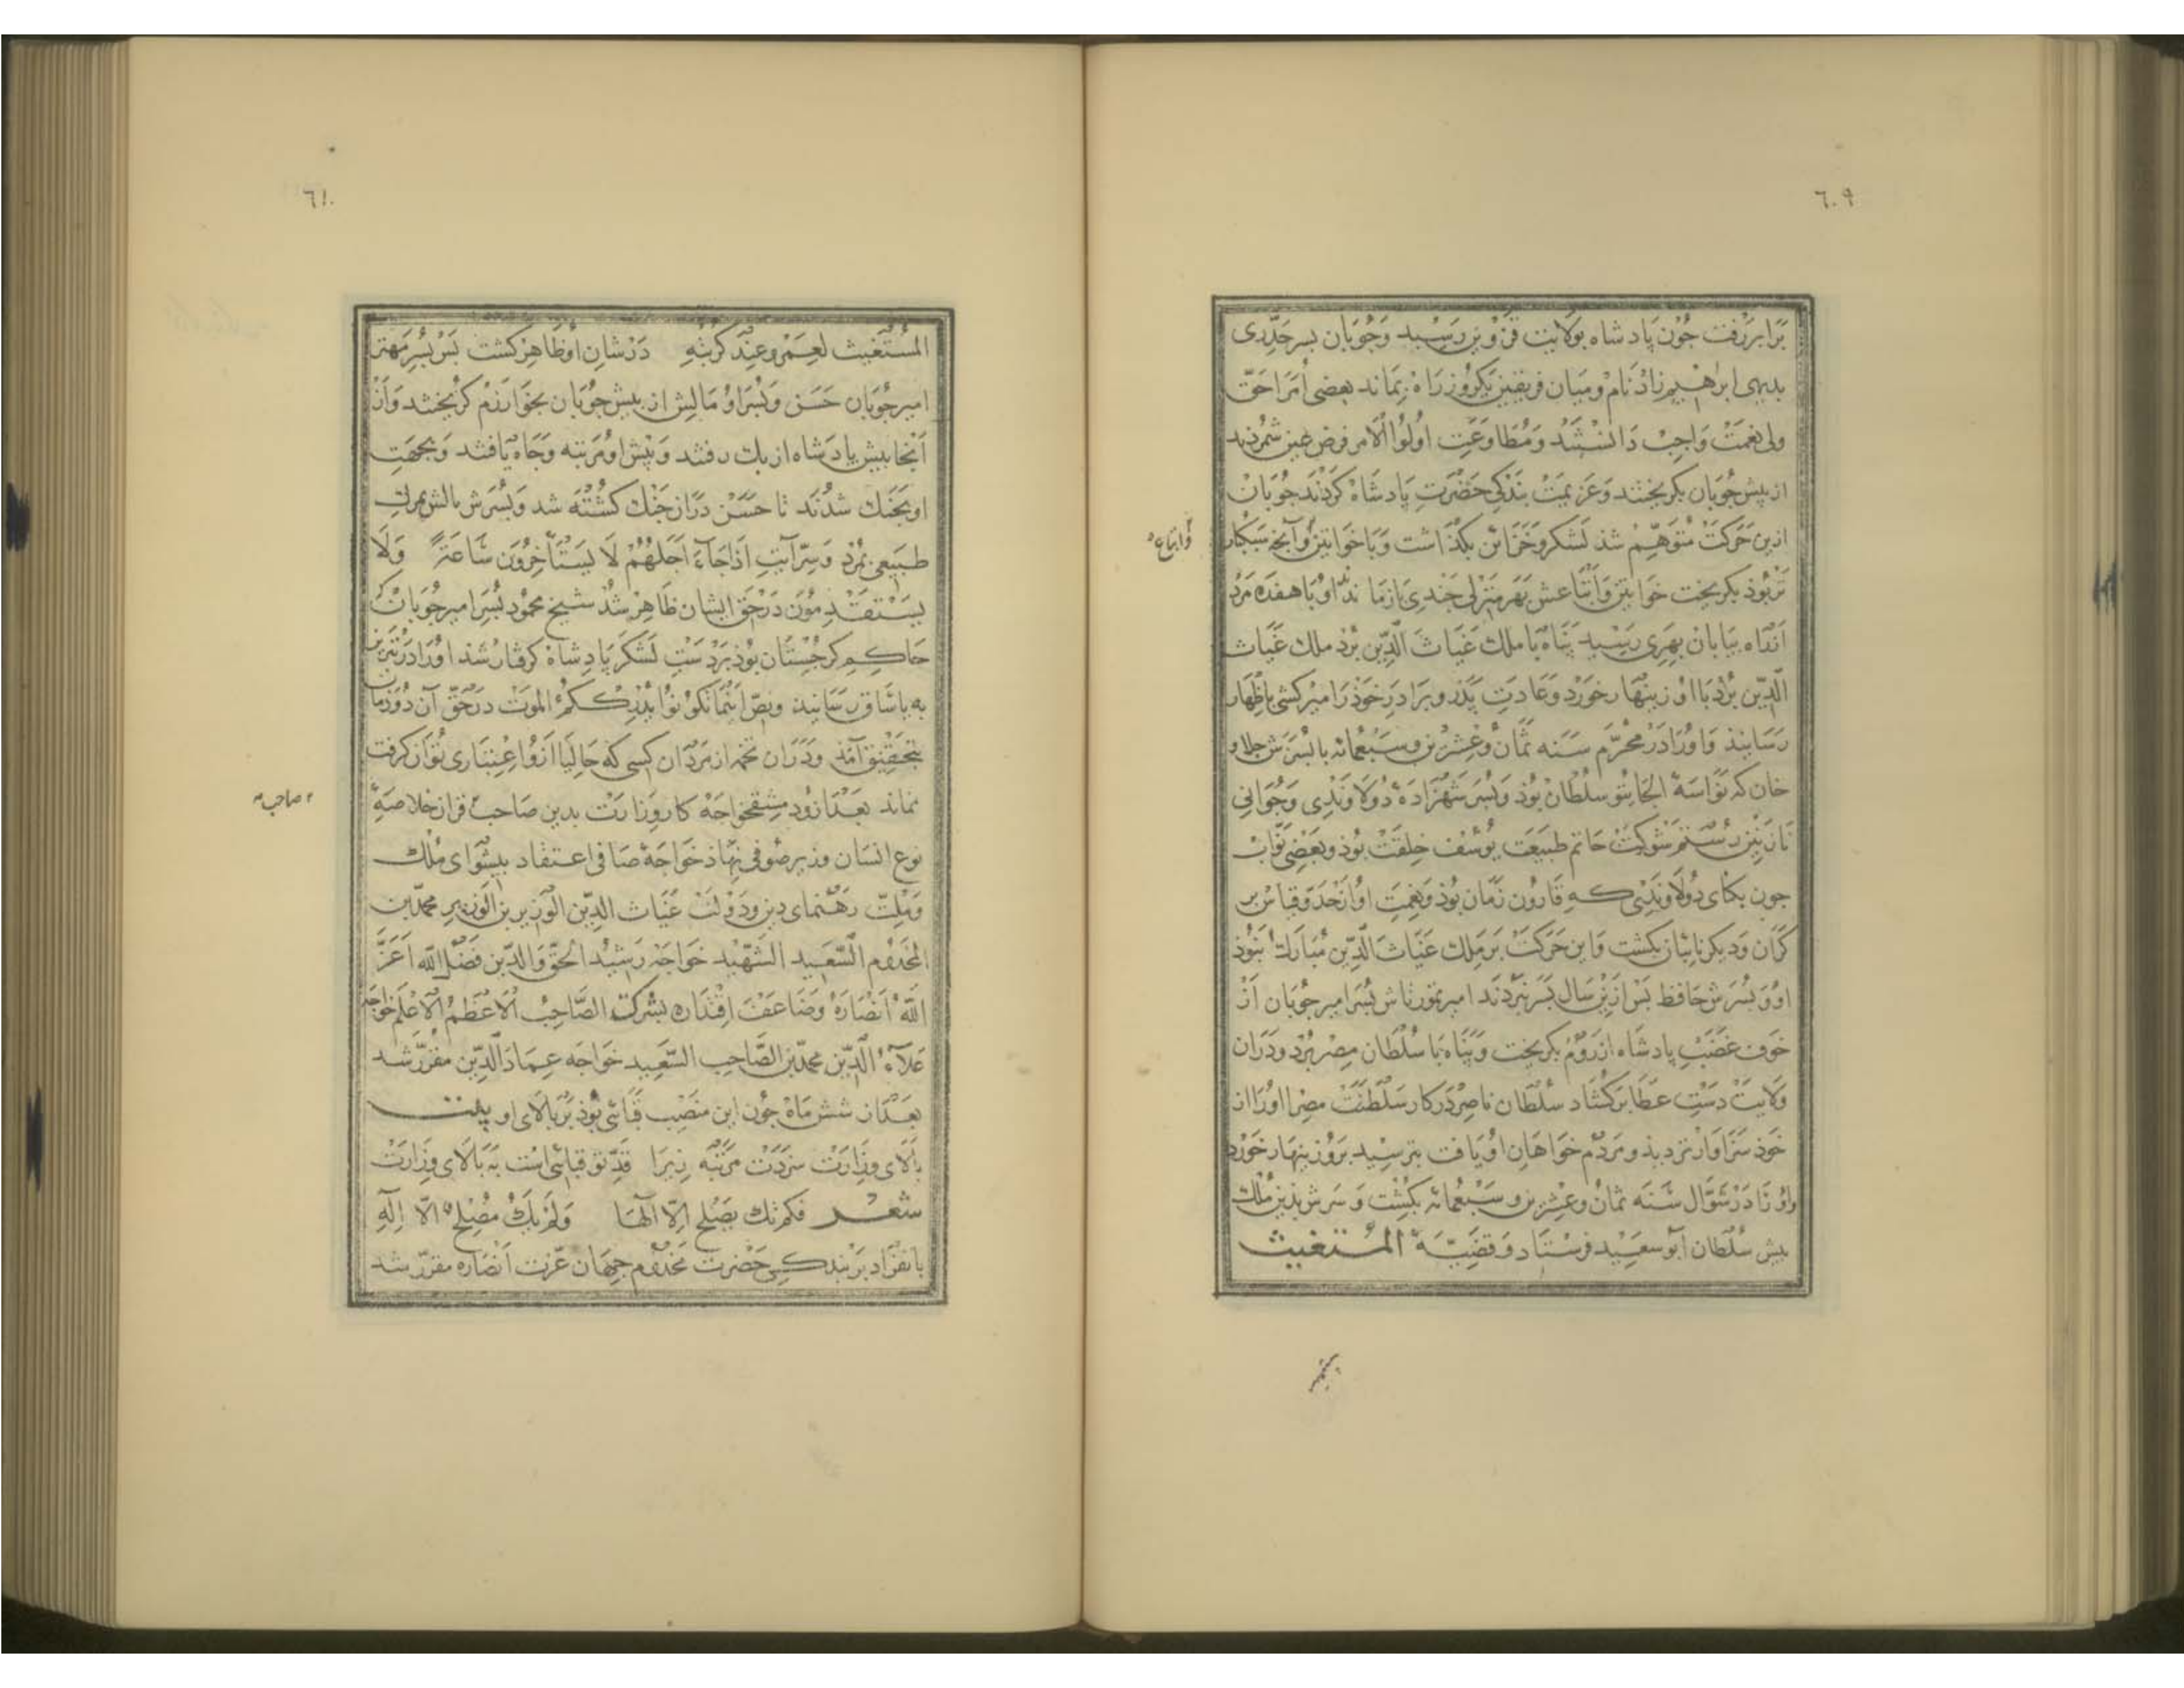 ٦٠٩
برابر رفت جون پادشاه بولایت قزوین رسید وجوبان بسر حد ری
بدیهی ابراهیم زاد نام ومیان فریقین یکروز راه بماند بعضی امرا حق
ولی نعمت واجب دانستند ومطاوعت اولوا الامر فرض عین شمردند
از پیش جوبان بکریختند وعزیمت بندکی حضرت پادشاه کردند جوبان
ازین حرکت متوهم شد لشکر وخزائن بکذاشت وباخواتین وآنجه سبکبار
واتباع
تر بود بکریخت خواتین وابتاعش بهر منزلی جندی بازماندند او با هفده مرد
از راه بیابان بهری رسید پناه با ملک غیاث الدین برد ملک غیاث
الدین بزد با او زینهار خورد وعادت پدر وبرادر خوذ را میرکشی باظهار
رسانیذ واورا در محرم سنه ثمان وعشرین وسبعمائه با پسرش جلاو
خان که نواسهٔ الجایتو سلطان بوذ وپسر شهزاده دولاوندی وجوانی
نازنین رستم شوکت حاتم طبیعت یوسف خلقت بوذ وبعضی نواب
جون بکتای دولاوندی که قارون زمان بوذ ونعمت او از حد وقیاس بر
کران ودیکر نایبان بکشت واین حرکت بر ملک غیاث الدین مبارک نبوذ
او وپسرش حافظ پس ازین سال بسر نبردند امیر تمورتاش پسر امیر جوبان از
خوف غضب پادشاه از روم بکریخت وپناه با سلطان مصر برد ودران
ولایت دست عطا برکشاد سلطان ناصر در کار سلطنت مصر اورا از
خوذ سزاوارتر دیذ ومردم خواهان او یافت بترسید بروز ینهار خورد
واورا در شوال سنه ثمان وعشرین وسبعمائه بکشت وسرش بذین ملک
بیش سلطان ابو سعید فرستاد وقضیهٔ المستغیث
٦١٠
المستغیث لعمرو عند کربته در شان او ظاهر کشت پس پسر مهتر
امیر جوبان حسن وپسر او مالش از پیش جوبان بخوارزم کریختند واز
آنجا بیش پادشاه ازبک رفتند وپیش او مرتبه وجاه یافتند وبجهت
او بجنک شدند تا حسن دران جنک کشته شد وپسرش مالش بمرک
طبیعی بمرد وسر آیت اذا جاء اجلهم لا یستأخرون ساعة ولا
یستقدمون در حق ایشان ظاهر شد شیخ محمود پسر امیر جوبان که
حاکم کرجستان بوذ بر دست لشکر پادشاه کرفتار شذ اورا در تبریز
به یاساق رسانیذ ونص اینما تکونوا یدرککم الموت در حق آن دوزمان
بتحقیق آمذ ودران تخمه از مردان کسی که حالیا ازو اعتباری توان کرفت
نماند بعد ازو دمشقخواجه کار وزارت بدین صاحب قران خلاصهٔ
صاحب
نوع انسان وزیر صوفی نهاذ خواجهٔ صافی اعتقاد پیشوای ملک
وملت رهنمای دین ودولت غیاث الدین الوزیر بن الوزیر محمد بن
المخدوم السعید الشهید خواجه رشید الحق والدین فضل الله اعز
الله انصاره وضاعف اقتداره بشرکت الصاحب الاعظم الاعلم خواجه
علاء الدین محمد بن الصاحب السعید خواجه عماد الدین مقرر شد
بعد از شش ماه جون این منصب قبائی بوذ بر بالای او بیت
بالای وزارت سزدت مرتبه زیرا قد تو قبائی است به بالای وزارت
شعر فلم تک یصلح الا لها ولم یک مصلح الا اله
بانفراد بر بندکی حضرت مخدوم جهان عزت انصاره مقرر شد